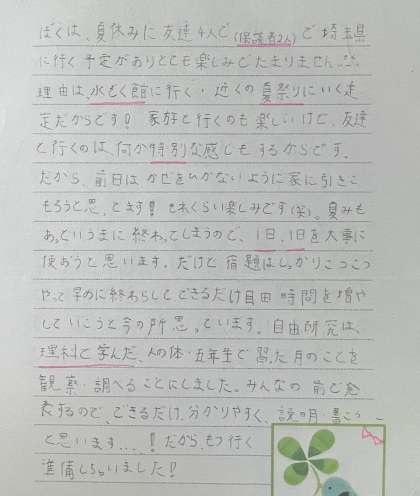 ぼくは、夏休みに友達4人で(保護者2人)で埼玉県
に行く予定がありとても楽しみでたまりません…。
理由は、水ぞく館に行く・近くの夏祭りにいく予
定だからです! 家族と行くのも楽しいけど、友達
と行くのは、何か特別な感じもするからです。
だから、前日はかぜをひかないように家に引きこ
もろうと思ってます! それくらい楽しみです(笑)。夏みも
あっというまに終わってしまうので、1日、1日を大事に
使おうと思います。だけど宿題はしっかりこつこつ
やって早めに終わらしてできるだけ自由時間を増や
していこうと今の所思っています。自由研究は、
理科で学んだ、人の体・五年生で習った月のことを
観察・調べることにしました。みんなの前で発
表するので、できるだけ、分かりやすく、説明・書こう
と思います...! だから、もう行く
準備しちゃいました!